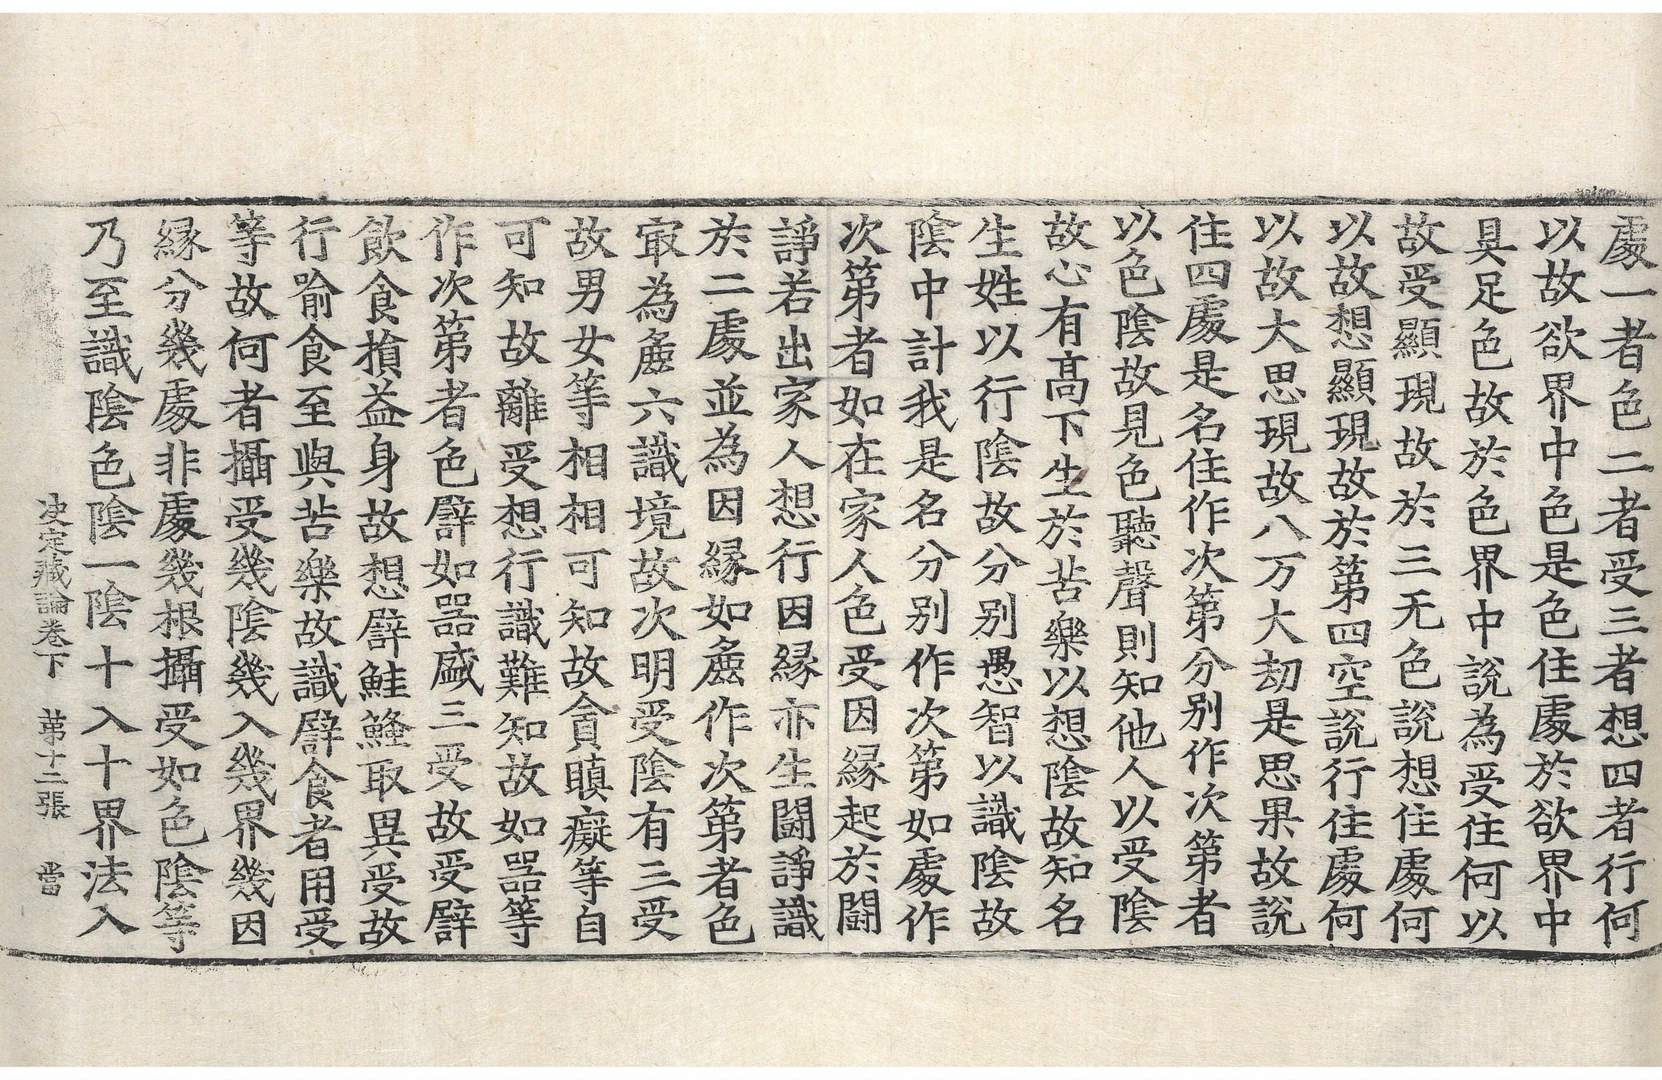 處一者色二者受三者想四者行何
以故欲界中色是色住處於欲界中
具足色故於色界中說為受住何以
故受顯現故於三无色說想住處何
以故想顯現故於第四空說行住處何
以故大思現故八万大劫是思果故說
住四處是名住作次第分別作次第者
以色陰故見色聽聲則知他人以受陰
故心有高下生於苦樂以想陰故知名
生姓以行陰故分別愚智以識陰故
陰中計我是名分別作次第如處作
次第者如在家人色受因縁起於鬪
諍若出家人想行因縁亦生鬪諍識
於二處並為因縁如麁作次第者色
㝡為麁六識境故次明受陰有三受
故男女等相相可知故貪瞋癡等自
可知故離受想行識難知故如器等
作次第者色譬如器盛三受故受譬
飲食損益身故想譬鮭𩺬取異受故
行喻食至與苦樂故識譬食者用受
等故何者攝受幾陰幾入幾界幾因
縁分幾處非處幾根攝受如色陰等
乃至識陰色陰一陰十入十界法入
决定藏論卷下 苐十二張 當